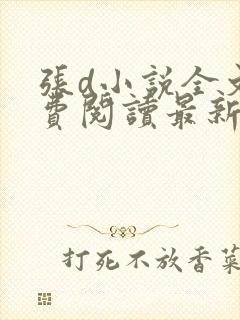 張d小說全文
費閱讀最新
打死不放香菜